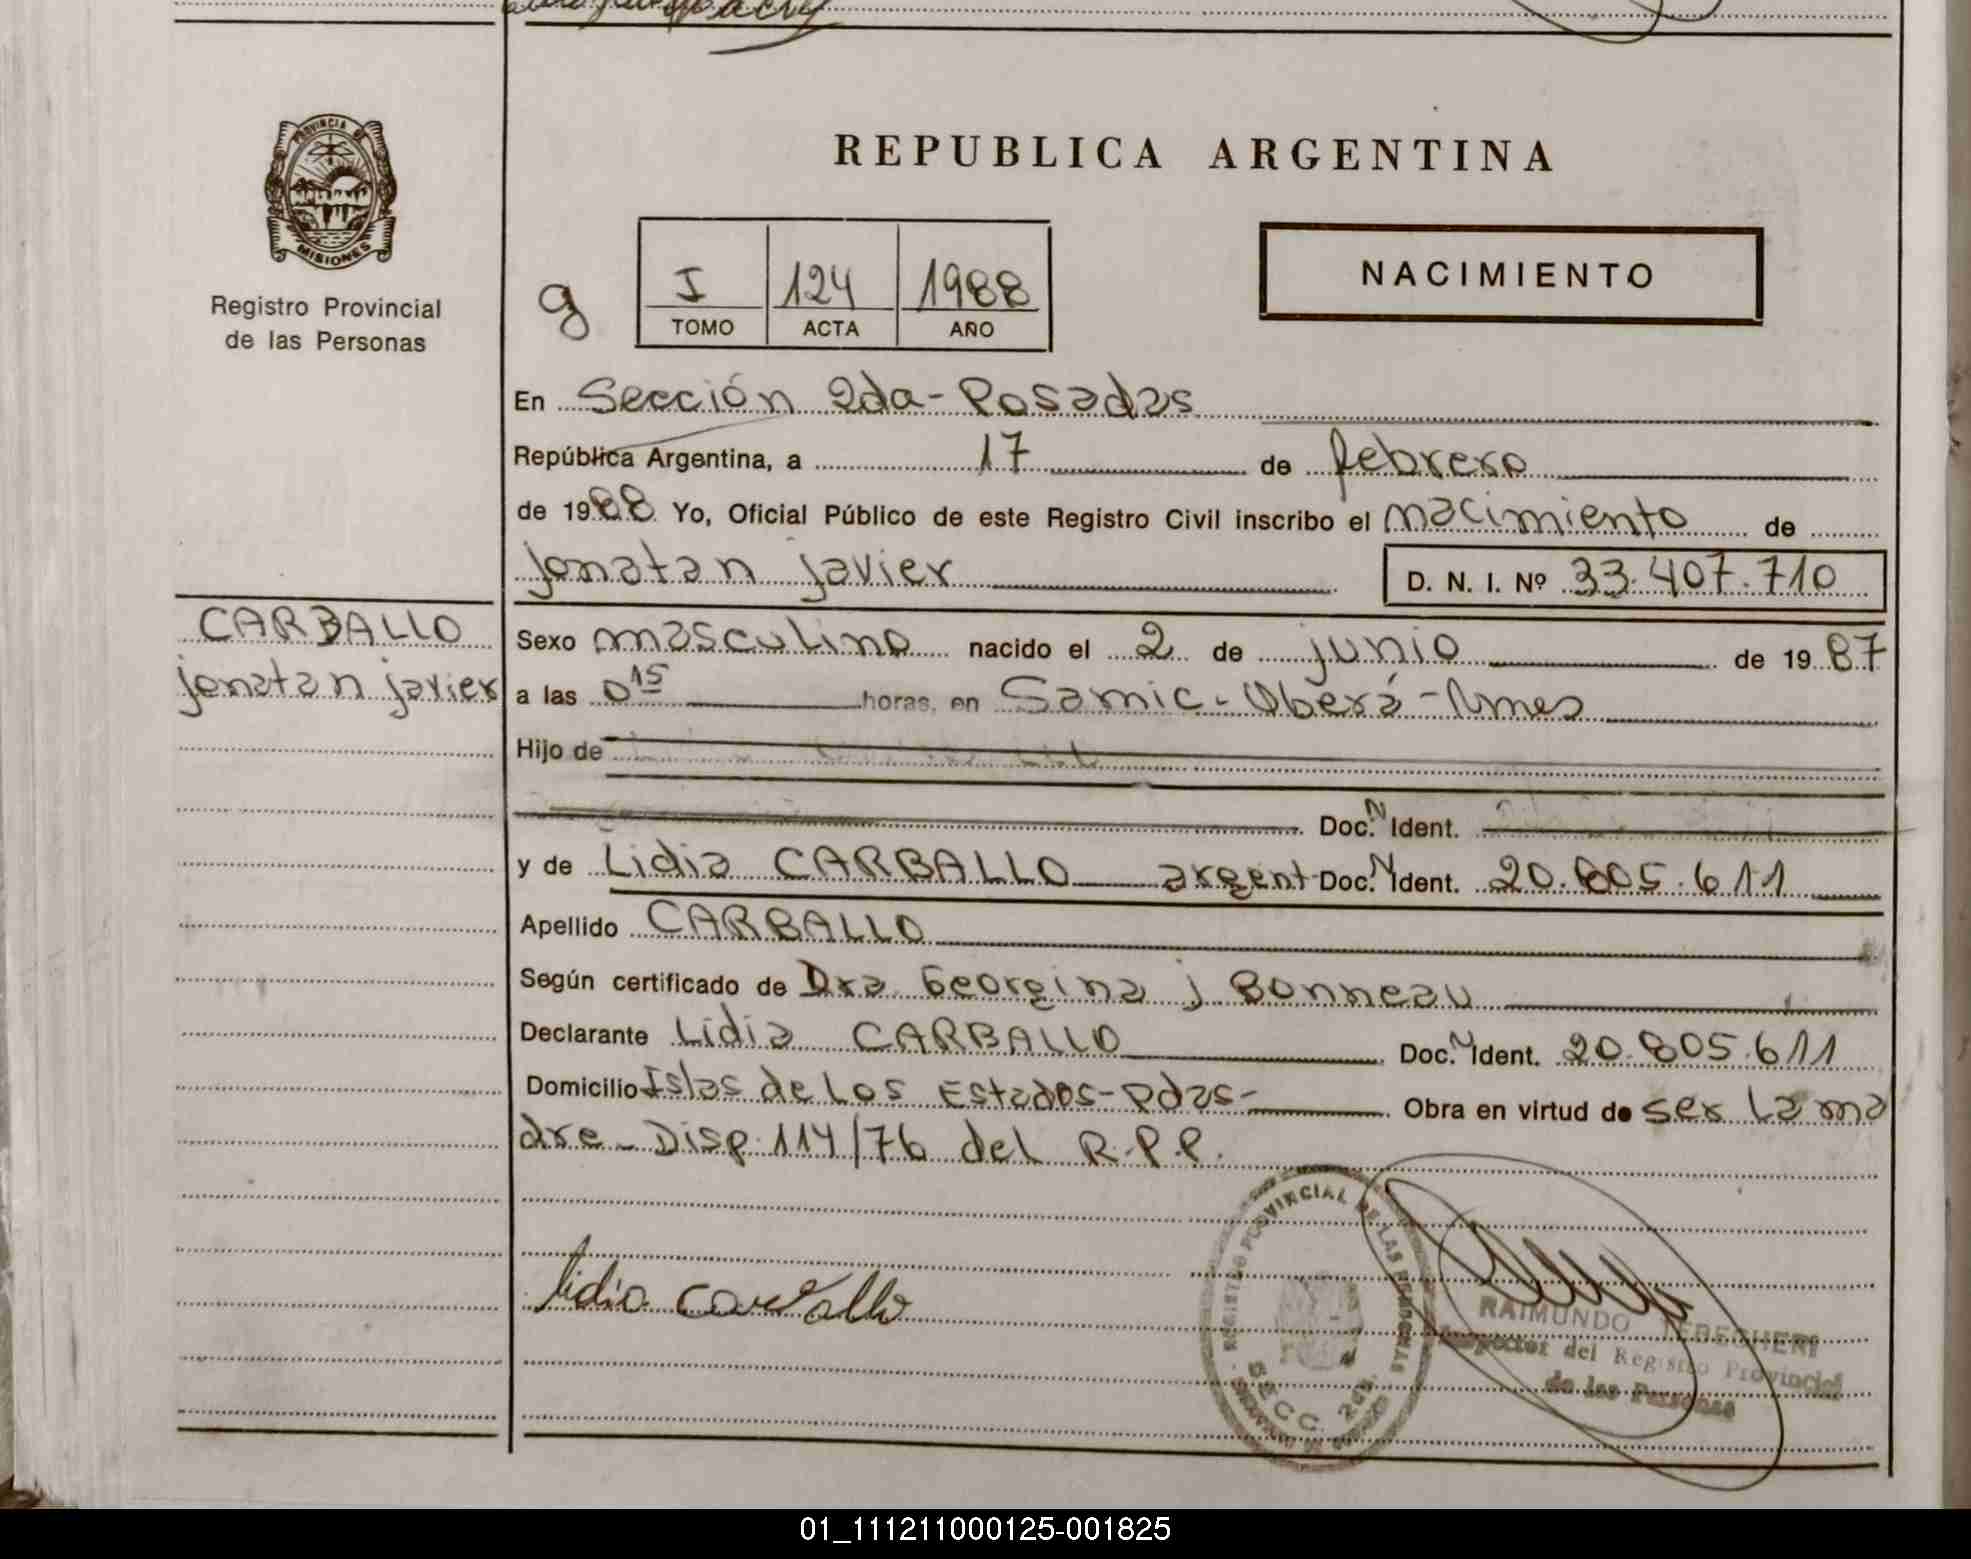 PROVINCIA DE
MISIONES
Registro Provincial
de las Personas
REPUBLICA ARGENTINA
g
I 124 1988
TOMO ACTA AÑO
NACIMIENTO
En Sección 2da - Posadas
República Argentina, a 17 de febrero
de 1988 Yo, Oficial Público de este Registro Civil inscribo el nacimiento de
Jonatan Javier D. N. I. Nº 33.407.710
CARBALLO
Jonatan Javier
Sexo masculino nacido el 2 de junio de 1987
a las 0 15 horas, en Samic - Oberá - Mnes
Hijo de
Doc. N Ident.
y de Lidia CARBALLO argent Doc. N Ident. 20.805.611
Apellido CARBALLO
Según certificado de Dra Georgina J Bonneau
Declarante Lidia CARBALLO Doc. N Ident. 20.805.611
Domicilio Islas de Los Estados - Pdas - Obra en virtud de ser La ma
dre - Disp. 114/76 del R.P.P.
Lidia Carballo
REGISTRO PROVINCIAL DE LAS PERSONAS
SECC. 2da.
RAIMUNDO
Inspector del Registro Provincial
de las Personas
01_111211000125-001825